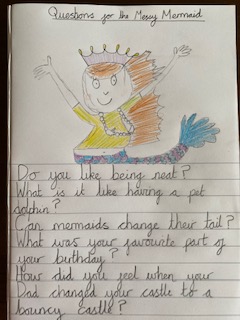 Questions for the Messy Mermaid
Do you like being neat?
What is it like having a pet
dolphin?
Can mermaids change their tail?
What was your favourite part of
your birthday?
How did you feel when your
Dad changed your castle to a
bouncy castle?